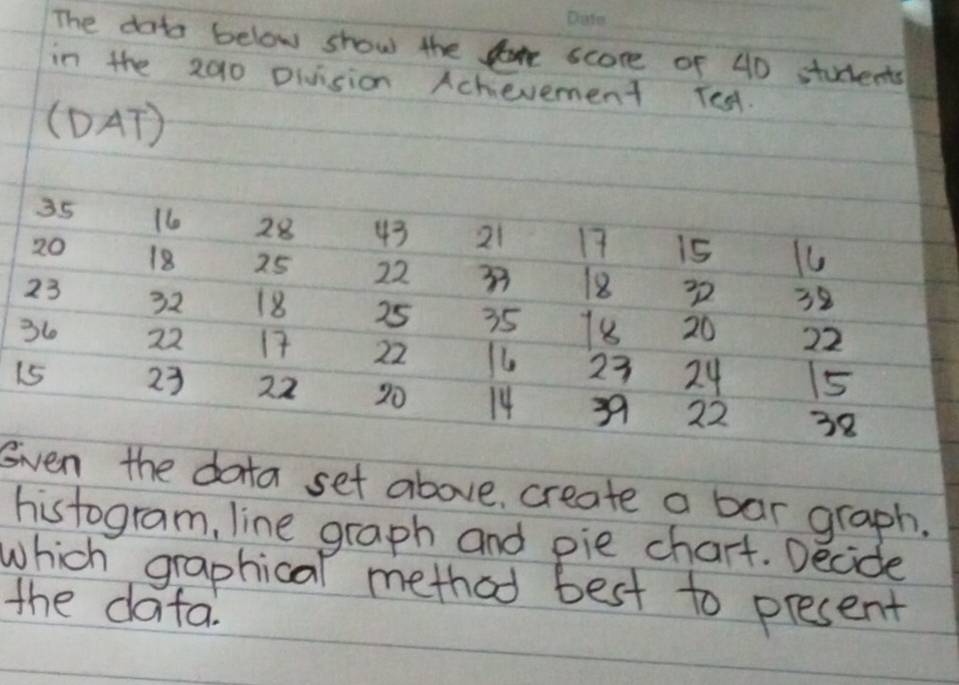 Date
The data below show the score of 40 students
in the 2010 Division Achievement Test.
(DAT)
35 16 28 43 21 17 15 16
20 18 25 22 33 18 32 38
23 32 18 25 35 18 20 22
36 22 17 22 16 23 24 15
15 23 22 20 14 39 22 38
Given the data set above. create a bar graph.
histogram, line graph and pie chart. Decide
which graphical method best to present
the data.